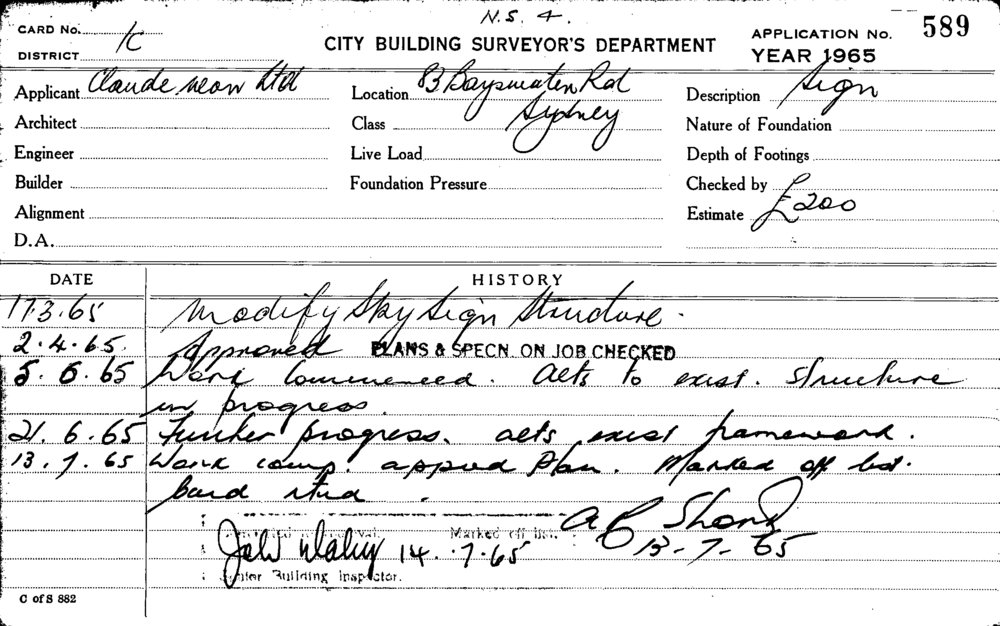 N.S. 4.
589
CARD No.
1C
DISTRICT
CITY BUILDING SURVEYOR'S DEPARTMENT
APPLICATION No.
YEAR 1965
Applicant Claude neon Ltd
Location 83 Bayswater Rd
Sydney
Description Sign
Architect
Class
Nature of Foundation
Engineer
Live Load
Depth of Footings
Builder
Foundation Pressure
Checked by
Alignment
Estimate £200
D.A.
DATE HISTORY
17.3.65 Modify Sky Sign Structure.
2.4.65. Approved PLANS & SPECN. ON JOB CHECKED
5.6.65 Work Commenced. Alts to exist. structure
in progress.
21.6.65 Further progress. alts exist framework.
13.7.65 Work comp. appvd Plan. Marked off list.
Card
Marked off list.
14.7.65
13-7-65
Senior Building Inspector.
C of S 882